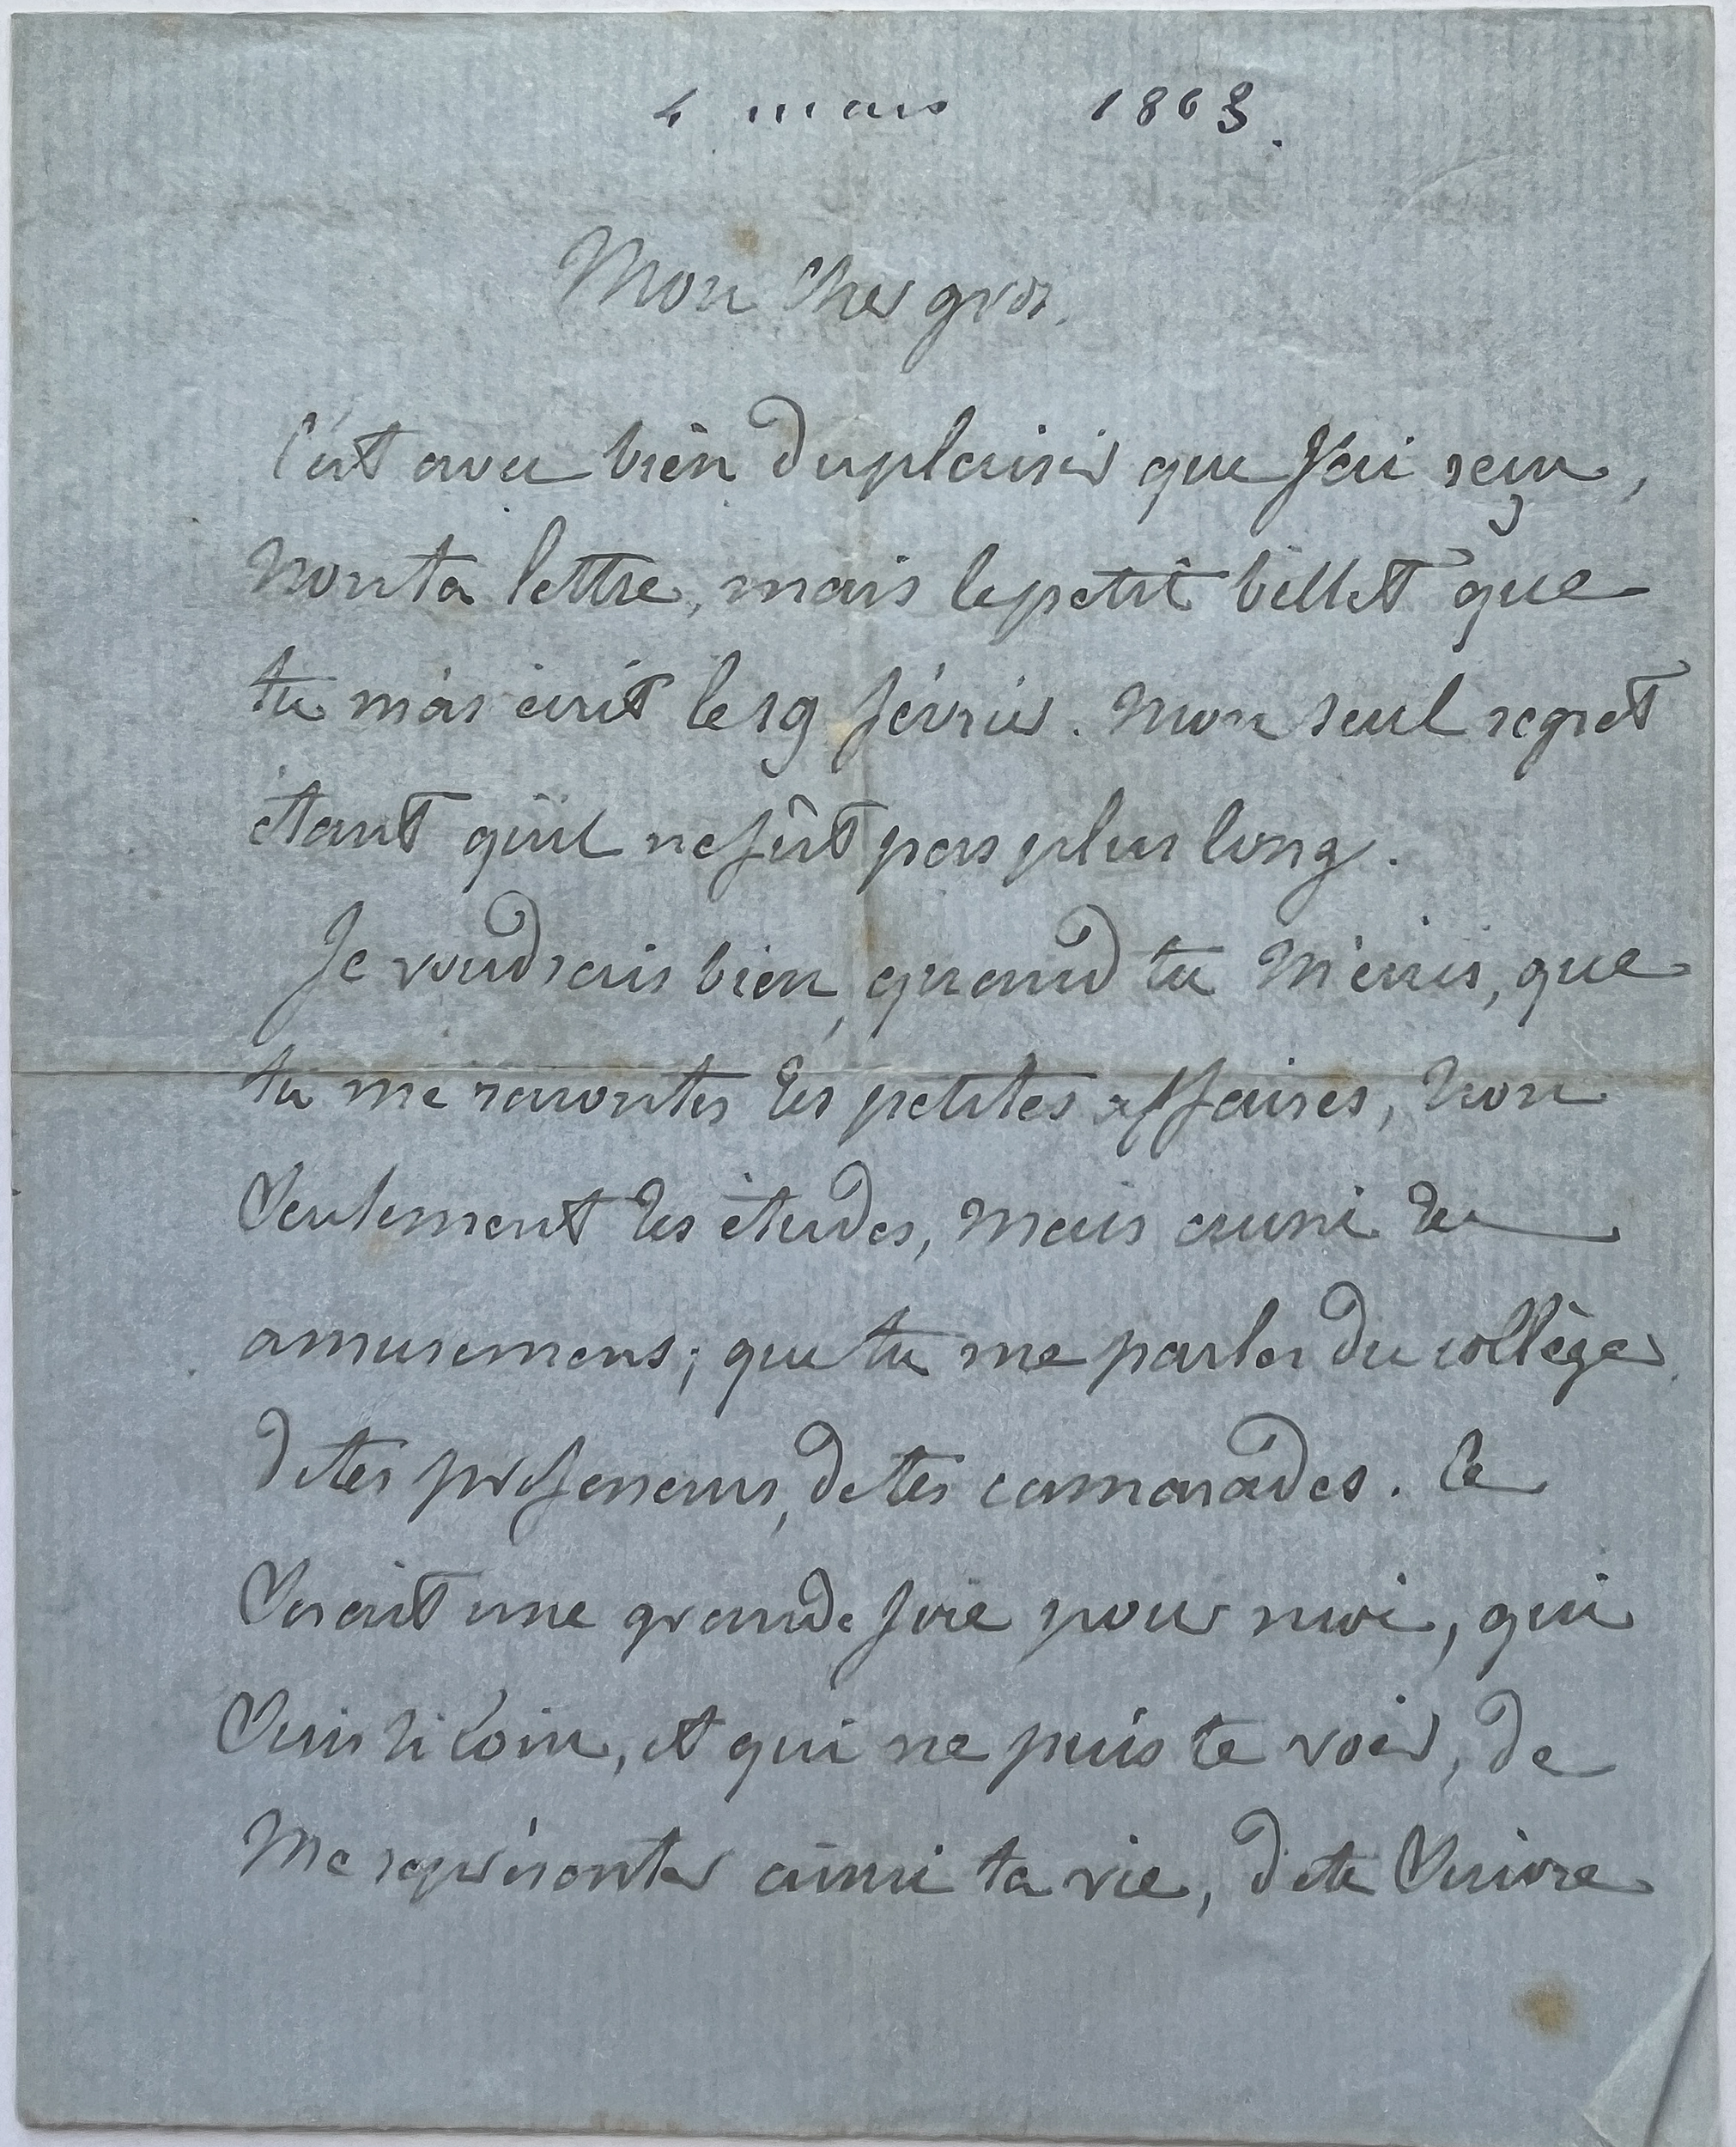 4 mars 1863.
Mon cher gros.
C'est avec bien du plaisir que j'ai reçu,
non ta lettre, mais le petit billet que
tu m'as écrit le 19 février. Mon seul regret
étant qu'il ne fût pas plus long.
Je voudrais bien, quand tu m'écris, que
tu me racontes tes petites affaires, non
seulement tes études, mais aussi tes
amusemens; que tu me parles du collège,
de tes professeurs, de tes camarades. Ce
serait une grande joie pour moi, qui
suis si loin, et qui ne puis te voir, de
me représenter ainsi ta vie, de te suivre